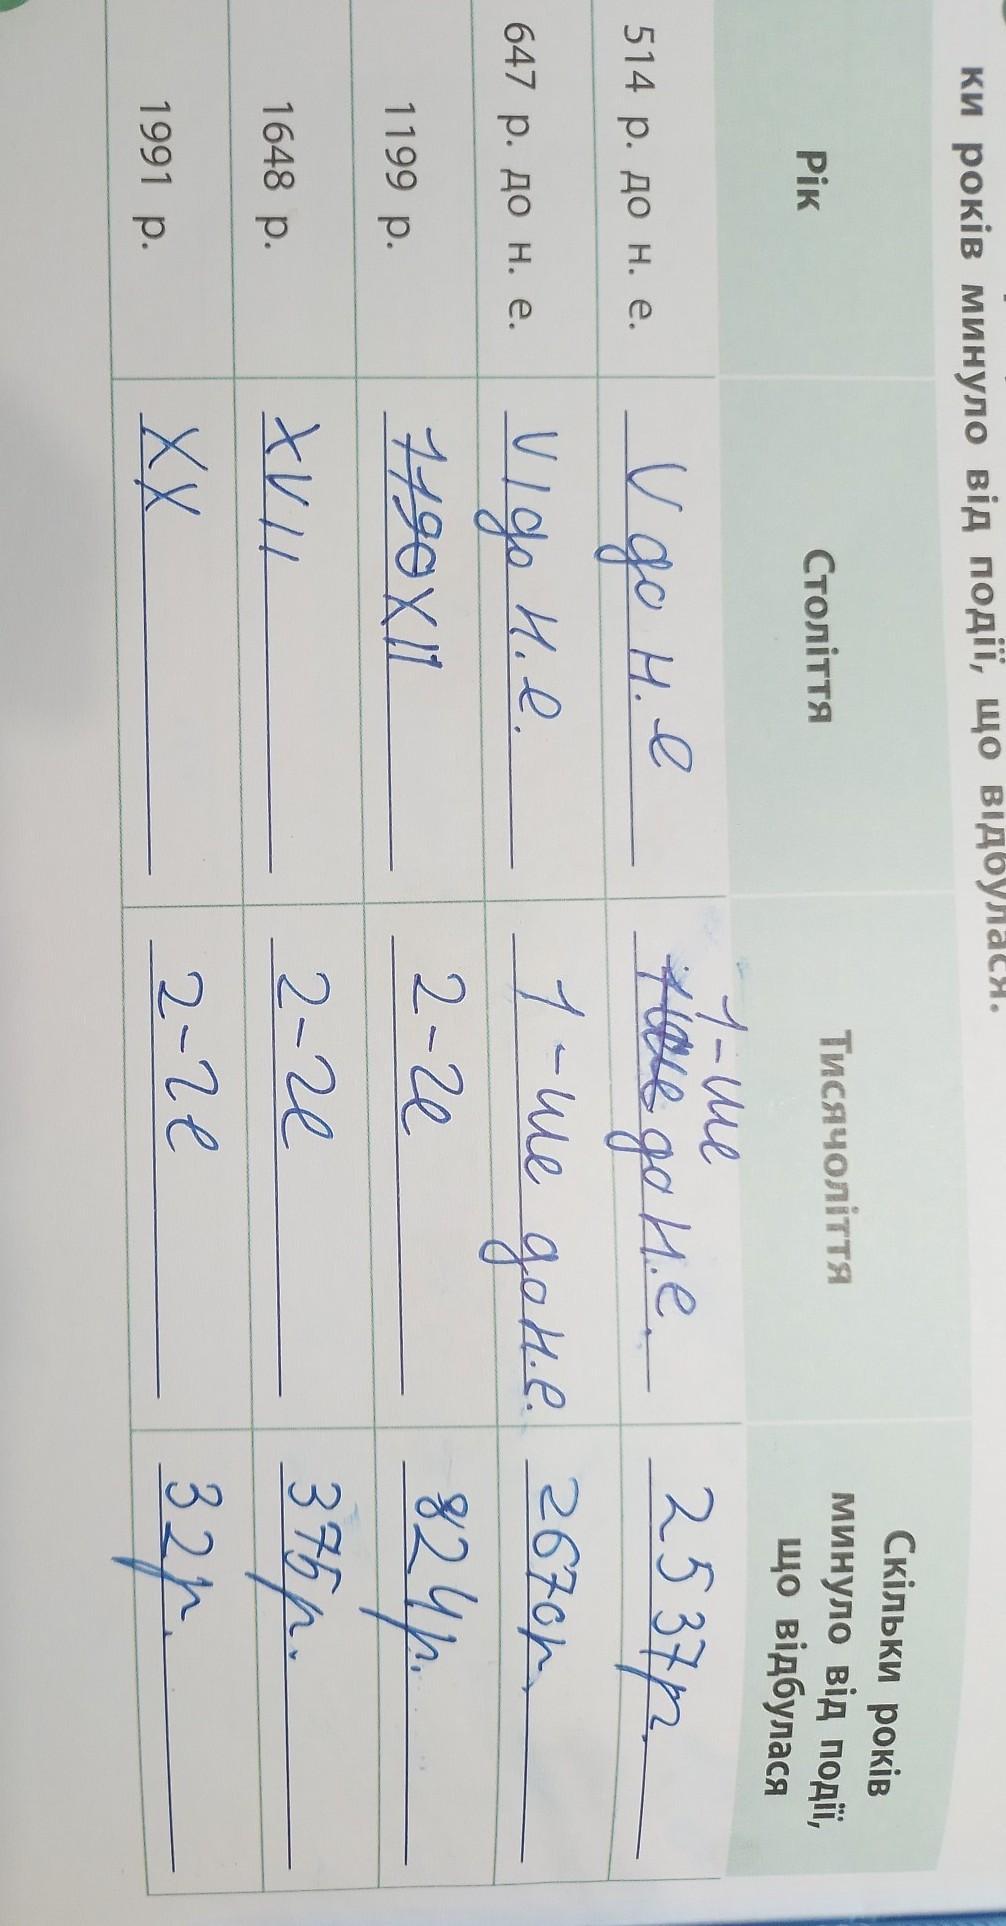 ки років минуло від події, що відбулася.
Рік Століття Тисячоліття Скільки років минуло від події, що відбулася
514 р. до н. е. V до н. е 1-ше до н.е. 2537р.
647 р. до н. е. VI до н.е. 1-ше до н.е. 2670р.
1199 р. XII 2-ге 824р.
1648 р. XVII 2-ге 375р.
1991 р. XX 2-ге 32р.